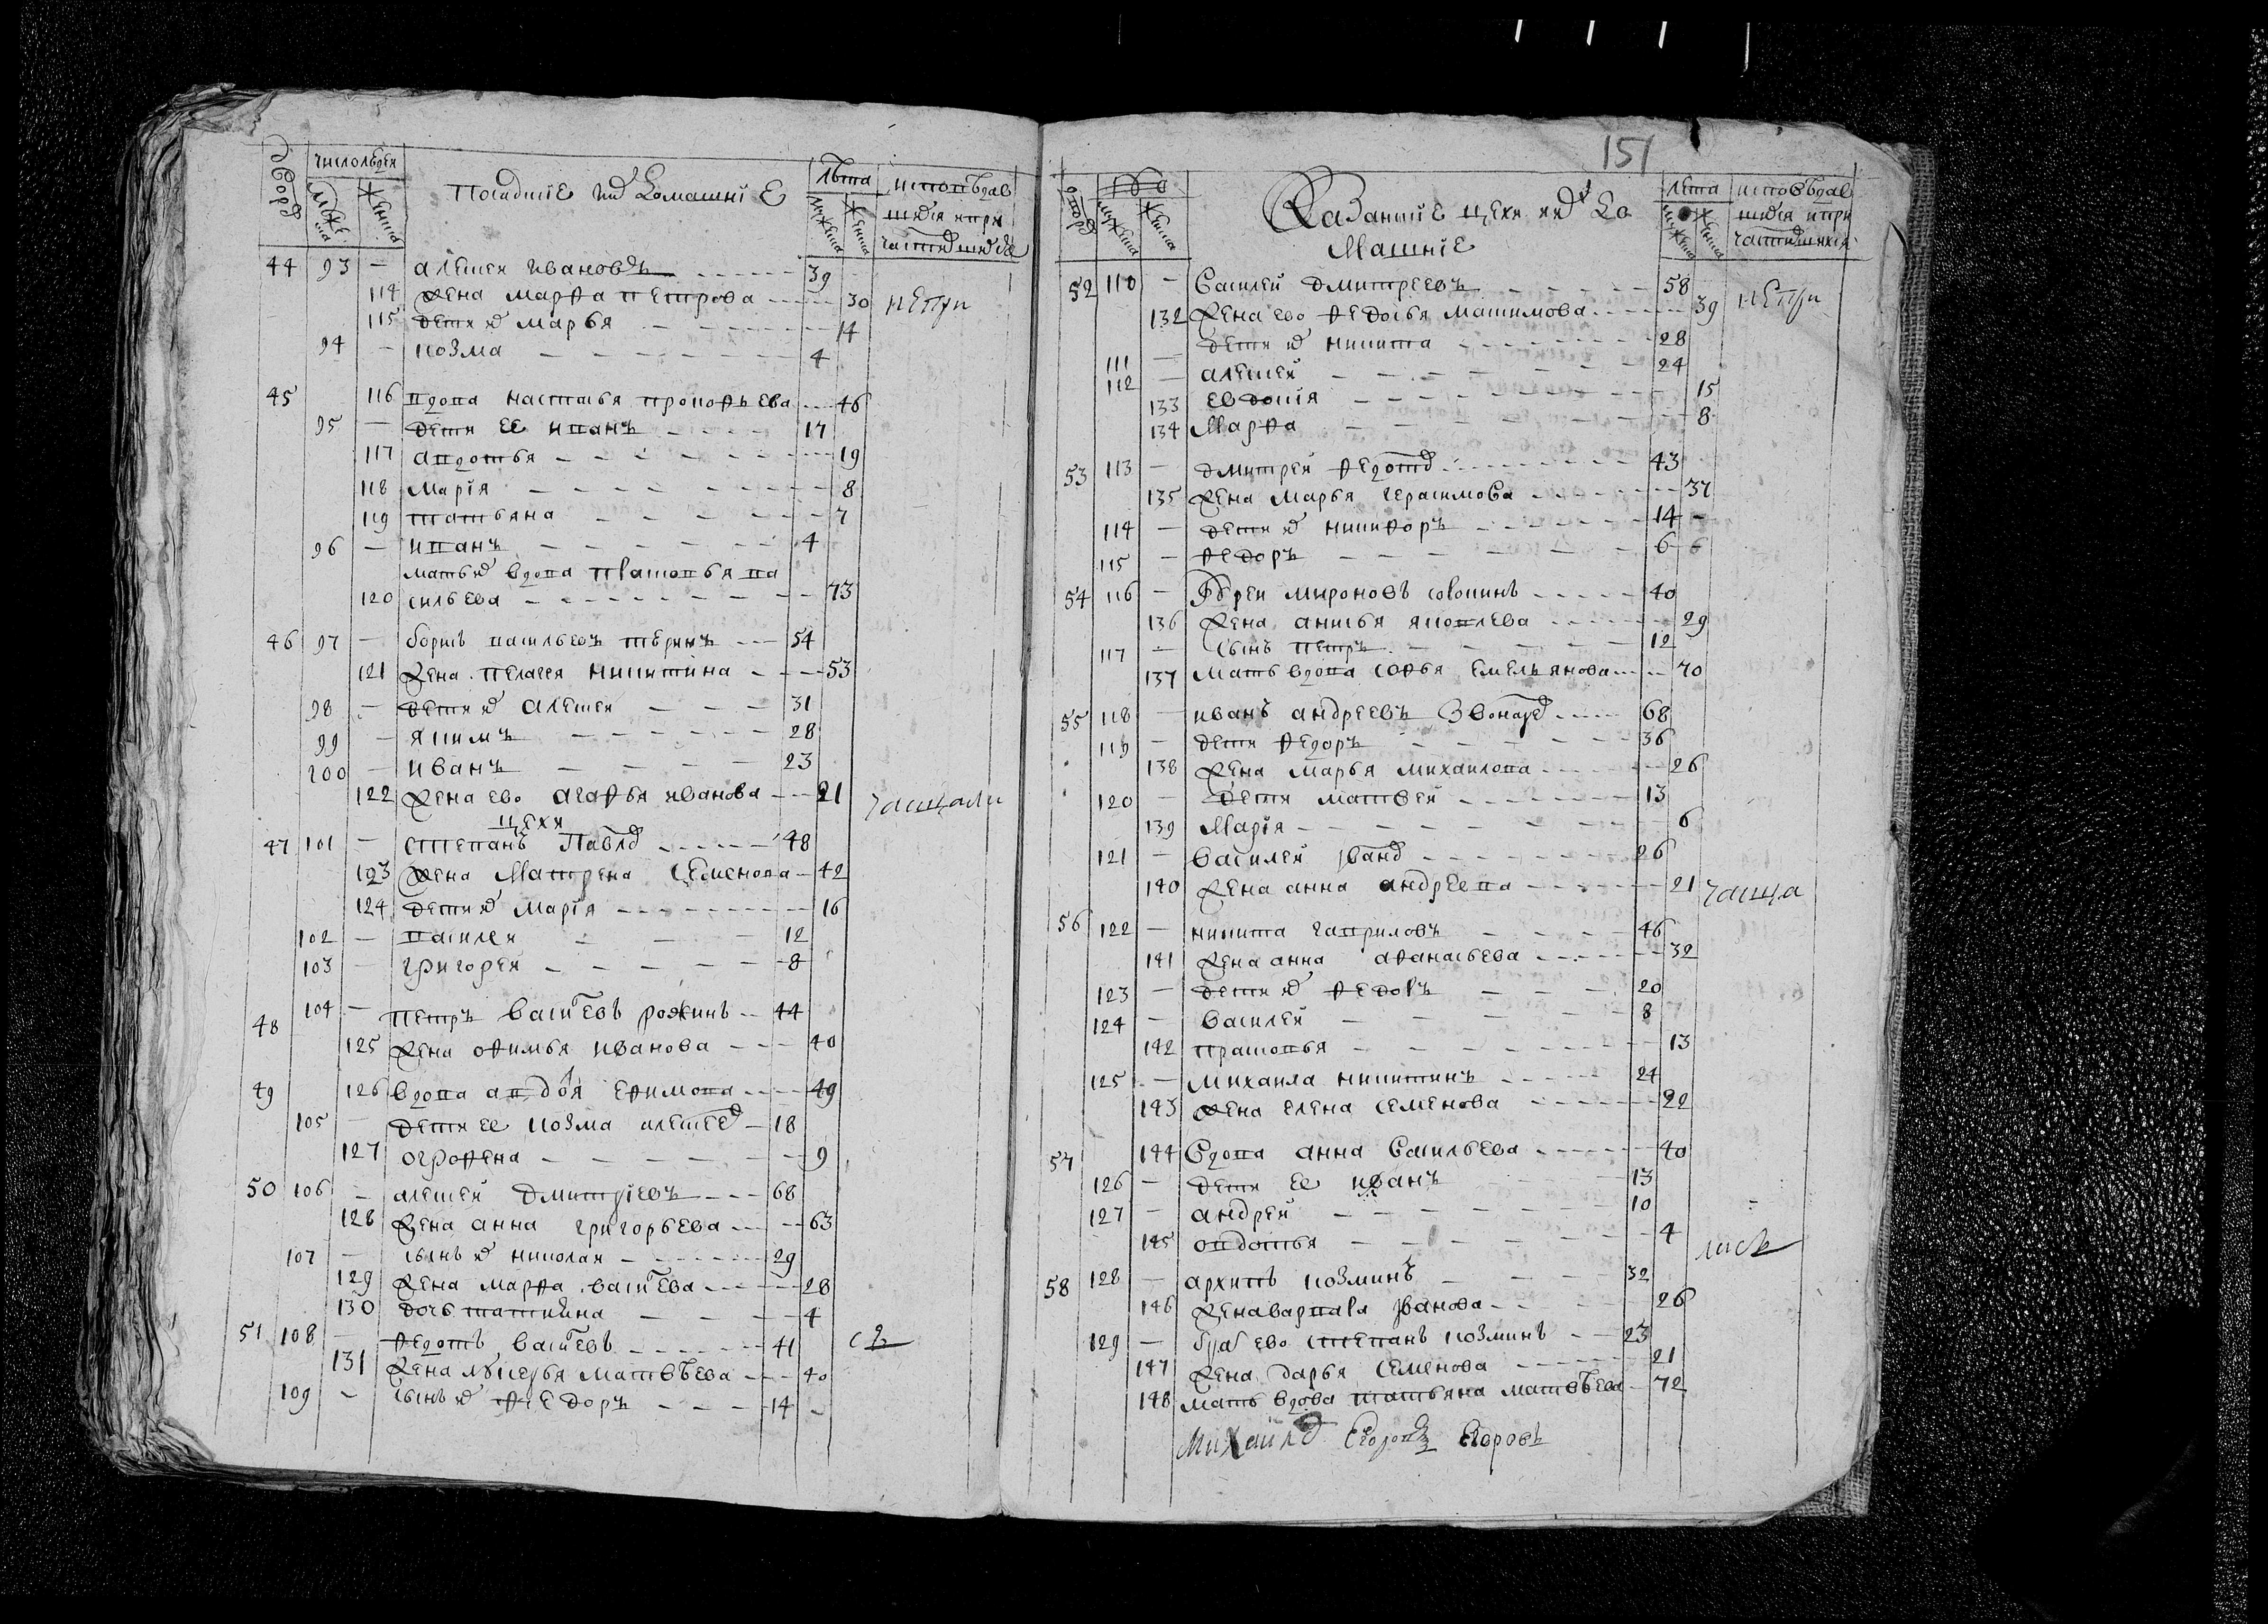 151
число людеи
мужеска
женска
Посадские их домашние
лѣта
мужска
женска
исповѣдав
44 93 — алексеи ивановъ 39
114 жена марфа петрова 30
115 дети их марья 14
94 — козма 4
45 116 вдова настасья прокофьева 46
95 — дети ее иванъ 17
117 авдотья 19
118 мария 8
119 татьяна 7
96 — иванъ 4
мать их вдова прасковья ва
120 сильева 73
46 97 — борисъ васильевъ 54
121 жена пелагея никитина 53
98 — дети их алексеи 31
99 — якимъ 28
100 — иванъ 23
122 жена ево агафья иванова 21
цехи
47 101 — степанъ Павло 48
123 жена Матрена Семенова 42
124 дети их мария 16
102 — василеи 12
103 — григореи 8
48 104 — петръ васильевъ рожинъ 44
125 жена офимья иванова 40
49 126 вдова авдотья ефимова 49
105 — дети ее козма алексее 18
127 огрофена 9
50 106 — алексеи дмитриевъ 68
128 жена анна григорьева 63
107 — сынъ их николаи 29
129 жена марфа васильева 28
130 дочь татиана 4
51 108 — федотъ васильевъ 41
131 жена лукерья матвѣева 40
109 — сынъ их федоръ 14
Казанские цехи их до
машние
лѣта
мужска
женска
исповѣдав
52 110 — василеи дмитреевъ 58
132 жена ево федосья максимова 39
111 — дети их никита 28
112 — алексеи 24
133 евдокия 15
134 Марфа 8
53 113 — дмитреи федото 43
135 жена марья герасимова 37
114 — дети их никифоръ 14
115 — федоръ 6 6
54 116 — мироновъ 40
136 жена анисья яковлева 29
117 — сынъ петръ 12
137 мать вдова софья емельянова 70
55 118 — иванъ андреевъ Звонаре 68
119 — дети федоръ 36
138 жена марья михаилова 26
120 — дети матвеи 13
139 Мария 6
121 — василеи ивано 26
140 жена анна андреева 21
56 122 — никита гавриловъ 46
141 жена анна афанасьева 32
123 — дети их федоръ 20
124 — василеи 8
142 прасковья 13
125 — михаила никитинъ 24
143 жена елена семенова 22
57 144 вдова анна васильева 40
126 — дети ее иванъ 13
127 — андреи 10
145 овдотья 4
58 128 — архипъ козминъ 32
146 жена варвара иванова 26
129 — братъ ево степанъ козминъ 23
147 жена дарья семенова 21
148 мать вдова татьяна матвѣева 72
Михаило Егоровъ